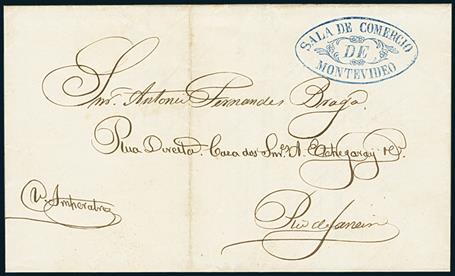 SALA DE COMERCIO
DE
MONTEVIDEO
Snr. Antonio Fernandes Braga.
Rua Direita. Casa dos Snrs. A. Etchegaray & Ca.
Rio de Janeiro